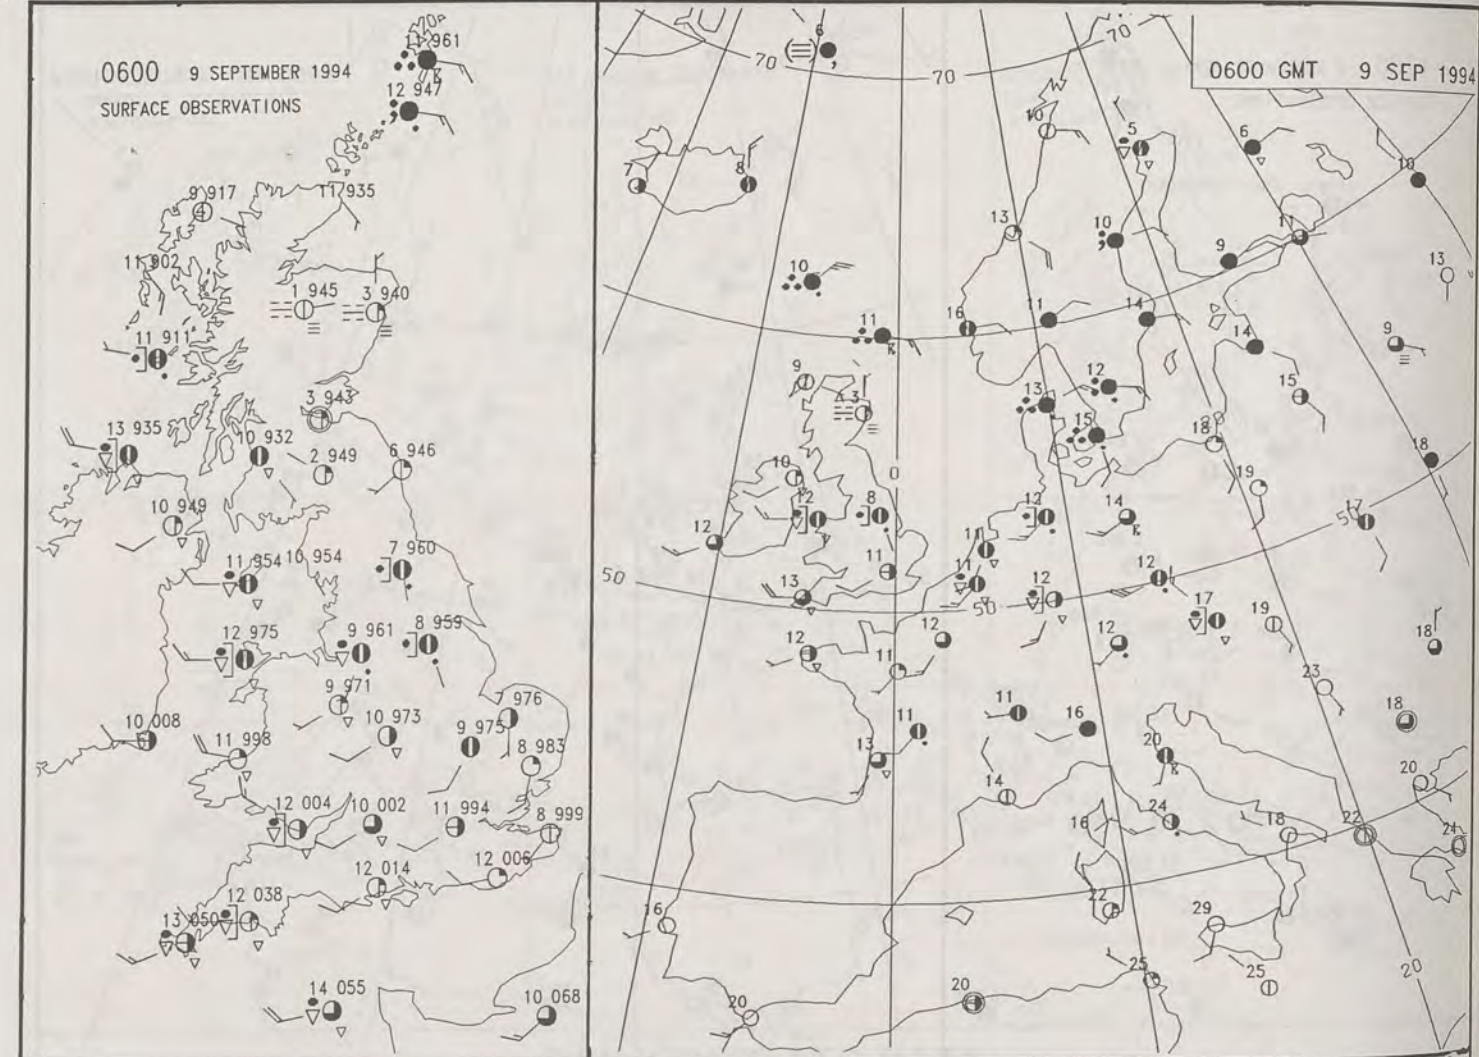 0600 9 SEPTEMBER 1994
SURFACE OBSERVATIONS
11 961
12 947
9 917
11 935
11 902
1 945
3 940
11 911
3 943
13 935
10 932
2 949
6 946
10 949
11 954
10 954
7 960
12 975
9 961
8 959
9 971
7 976
10 008
10 973
9 975
11 998
8 983
12 004
10 002
11 994
8 999
12 006
12 014
12 038
13 050
14 055
10 068
0600 GMT 9 SEP 1994
6
70
70
70
10
5
6
10
7
8
13
10
11
9
13
10
11
16
11
14
14
9
9
12
15
3
13
15
18
18
10
0
19
12
8
12
14
17
50
12
11
11
50
13
11
12
12
50
17
19
12
12
12
18
11
23
11
11
16
18
13
20
20
14
24
16
18
22
24
16
22
29
25
25
20
20
20